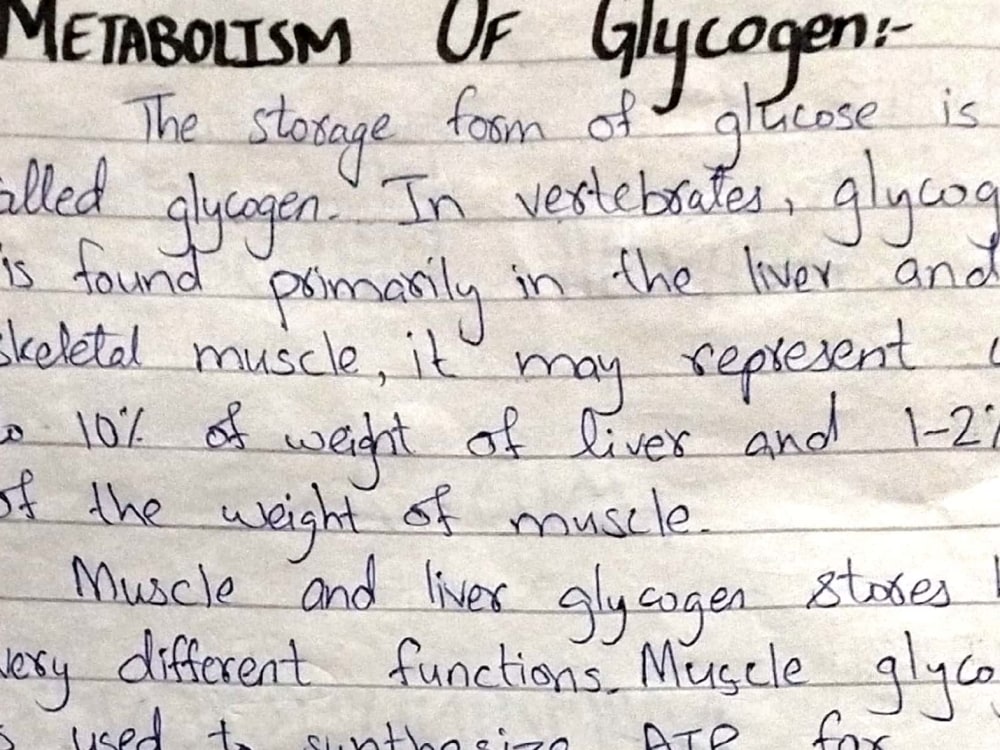 METABOLISM OF Glycogen:-
The storage form of glucose is
alled glycogen. In vertebrates, glycog
is found primarily in the liver and
skeletal muscle, it may represent
10% of weight of liver and 1-2%
of the weight of muscle.
Muscle and liver glycogen stores
very different functions. Muscle glyco
used to synthesize ATP for